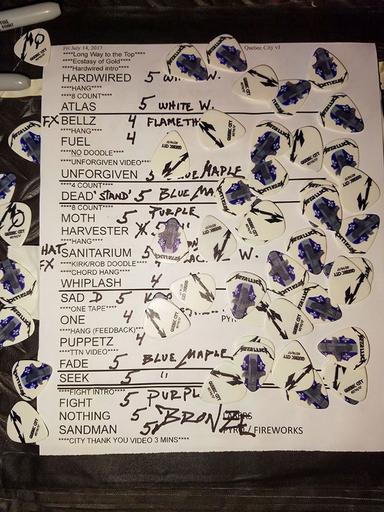 Fri July 14, 2017 Quebec City v1
****Long Way to the Top****
****Ecstasy of Gold****
****Hardwired intro****
HARDWIRED 5
****HANG****
****8 COUNT****
ATLAS 5 WHITE W.
FX BELLZ 4 FLAMETH
****HANG****
FUEL 4
****NO DOODLE****
****UNFORGIVEN VIDEO****
UNFORGIVEN 5 BLUE MAPLE
****4 COUNT****
DEAD 'STAND' 5 BLUE MA
****8 COUNT****
MOTH 5 PURPLE
HARVESTER
****HANG****
HAT SANITARIUM 5 W.
FX ****KIRK/ROB DOODLE****
****CHORD HANG****
WHIPLASH 4
SAD D 5
****ONE TAPE****
ONE 4 PY
****HANG (FEEDBACK)****
PUPPETZ 4
****TTN VIDEO****
FADE 5 BLUE MAPLE
SEEK 5 "
****FIGHT INTRO****
FIGHT 5 PURPL
NOTHING 5 BRONZE LASERS
SANDMAN 5 PYRO / FIREWORKS
****CITY THANK YOU VIDEO 3 MINS****
METALLICA
QUEBEC CITY